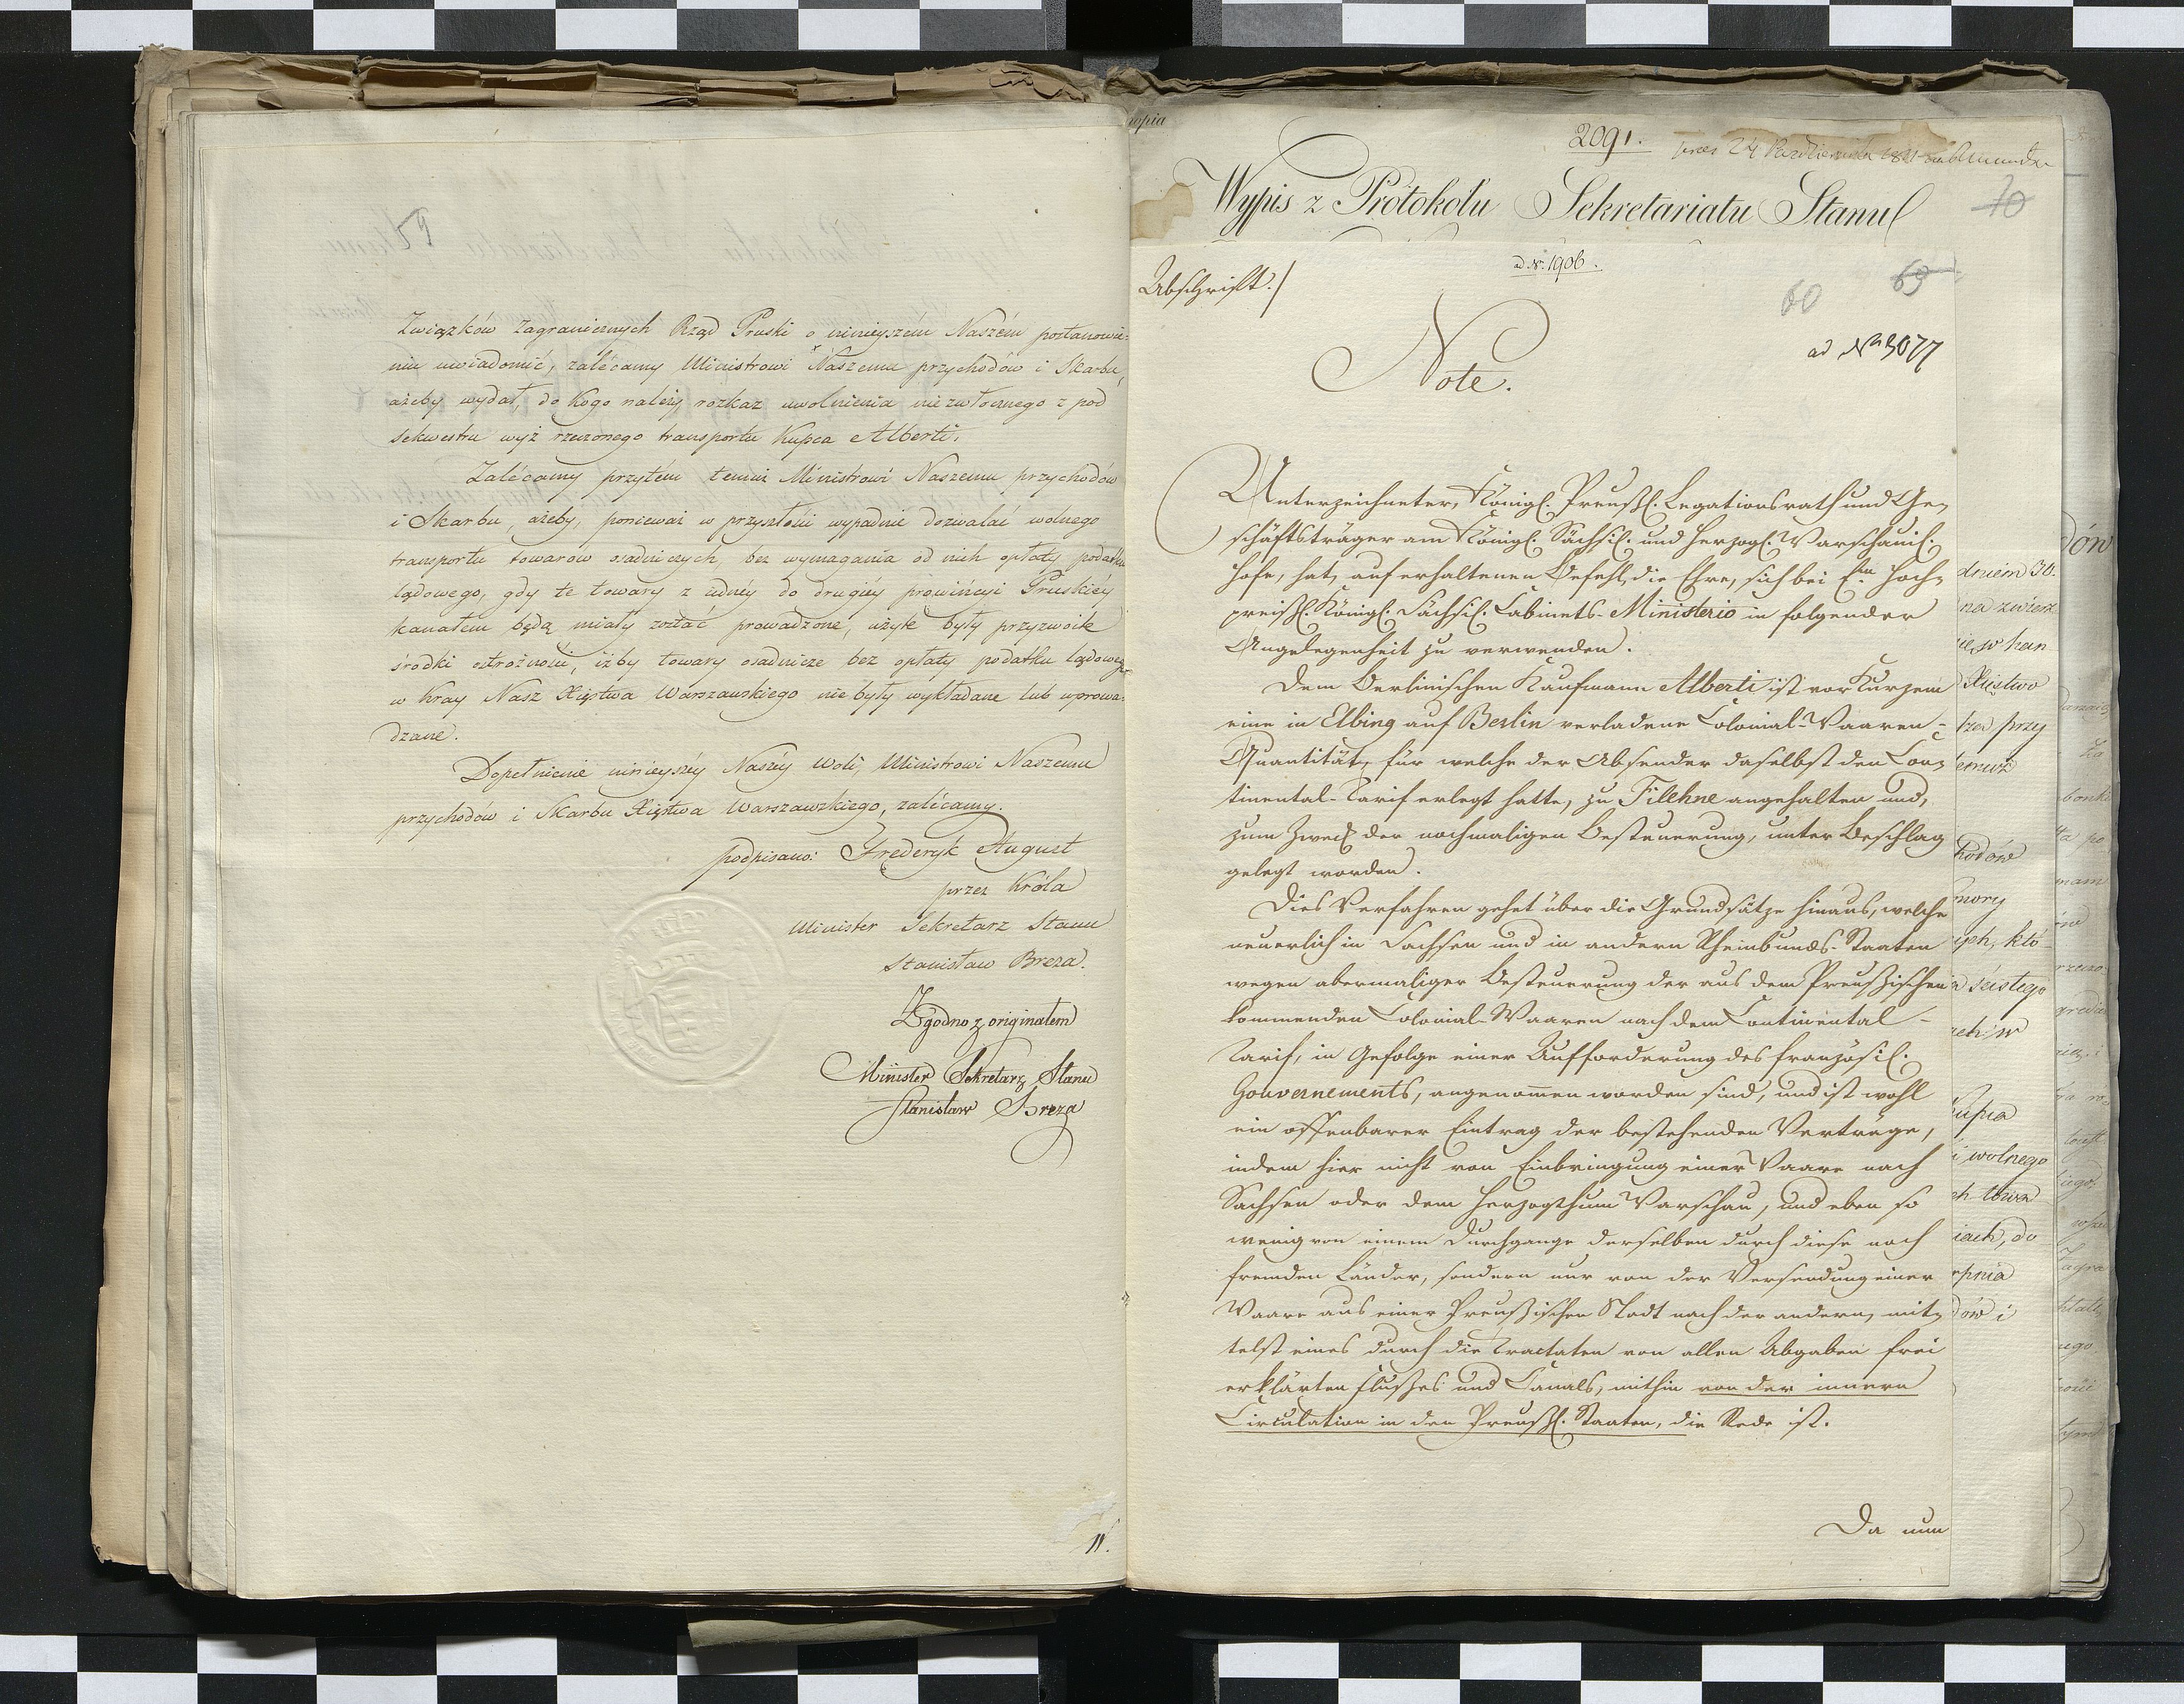 59
Związków Zagranicznych Rząd Pruski o ninieyszém Naszém postanowie-
niu uwiadomić, zalécamy Ministrowi Naszemu przychodów i Skarbu,
ażeby wydał, do kogo należy, rozkaz uwolnienia niezwłocznego z pod
sekwestru wyż rzeczonego transportu Kupca Alberti.
Zalécamy przytém temuż Ministrowi Naszemu przychodów
i Skarbu, ażeby, ponieważ w przyszłości wypadnie dozwalać wolnego
transportu towarów osadniczych, bez wymagania od nich opłaty podatku
lądowego, gdy te towary z iednéy do drugiéy prowincyi Pruskiéy
kanałem będą miały zostać prowadzone, użyte były przyzwoite
środki ostrożności, iżby towary osadnicze bez opłaty podatku lądowego
w Kray Nasz Xięstwa Warszawskiego nie były wykładane lub wprowa-
dzane.
Dopełnienie ninieyszéy Naszéy Woli, Ministrowi Naszemu
przychodów i Skarbu Xięstwa Warszawskiego, zalécamy.
podpisano: Frederyk August
przez Króla
Minister Sekretarz Stanu
Stanisław Breza.
Zgodno z originałem
Minister Sekretarz Stanu
Stanisław Breza
11.
2091.
24 Października
Wypis z Protokołu Sekretariatu Stanu
70
ad Nr. 1906.
Abschrift./
60
69
ad Nr 3077
Note.
Unterzeichneter, Königl. Preußl. Legationsrath und Ge-
schäftsträger am Königl. Sächsisl. und Herzogl. Warschauisl.
Hofe, hat, auf erhaltenen Befehl, die Ehre, sich bei Em. Hoch-
preisl. Königl. Sächsisl. Cabinets-Ministerio in folgender
Angelegenheit zu verwenden.
Dem Berlinischen Kaufmann Alberti ist vor Kurzem
eine in Elbing auf Berlin verladene Colonial-Waaren-
Quantität, für welche der Absender daselbst den Con-
tinental-Tarif erlegt hatte, zu Filehne angehalten und,
zum Zweck der nochmaligen Besteuerung, unter Beschlag
gelegt worden.
Dies Verfahren gehet über die Grundsätze hinaus, welche
neuerlich in Sachsen und in andern Rheinbunds-Staaten
wegen abermaliger Besteuerung der aus dem Preußischen
kommenden Colonial-Waaren nach dem Continental-
Tarif, in Gefolge einer Aufforderung des französisl.
Gouvernements, angenommen worden sind, und ist wohl
ein offenbarer Eintrag der bestehenden Verträge,
indem hier nicht von Einbringung einer Waare nach
Sachsen oder dem Herzogthum Warschau, und eben so
wenig von einem Durchgange derselben durch diese nach
fremden Länder, sondern nur von der Versendung einer
Waare aus einer Preußischen Stadt nach der andern, mit-
telst eines durch die Tractaten von allen Abgaben frei
erklärten Flußes und Canals, mithin von der innern
Circulation in den Preußl. Staaten, die Rede ist.
Da nun